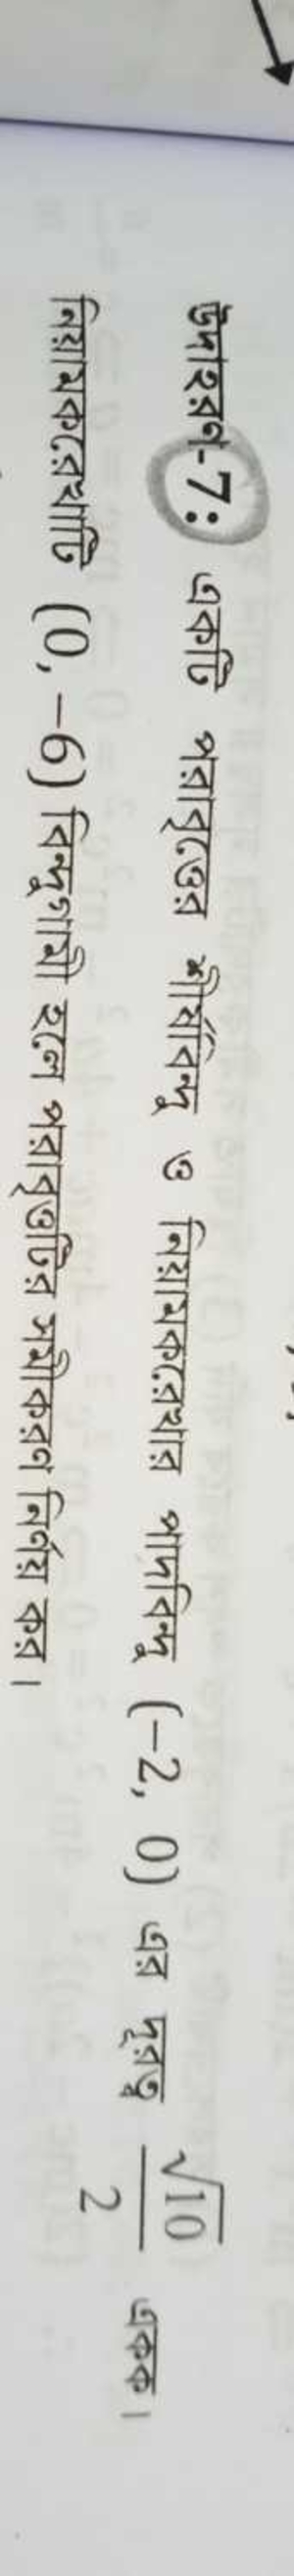 উদাহরণ-7: একটি পরাবৃত্তের শীর্ষবিন্দু ও নিয়ামকরেখার পাদবিন্দু (−2, 0) এর দূরত্ব √10/2 একক।
নিয়ামকরেখাটি (0, −6) বিন্দুগামী হলে পরাবৃত্তটির সমীকরণ নির্ণয় কর।